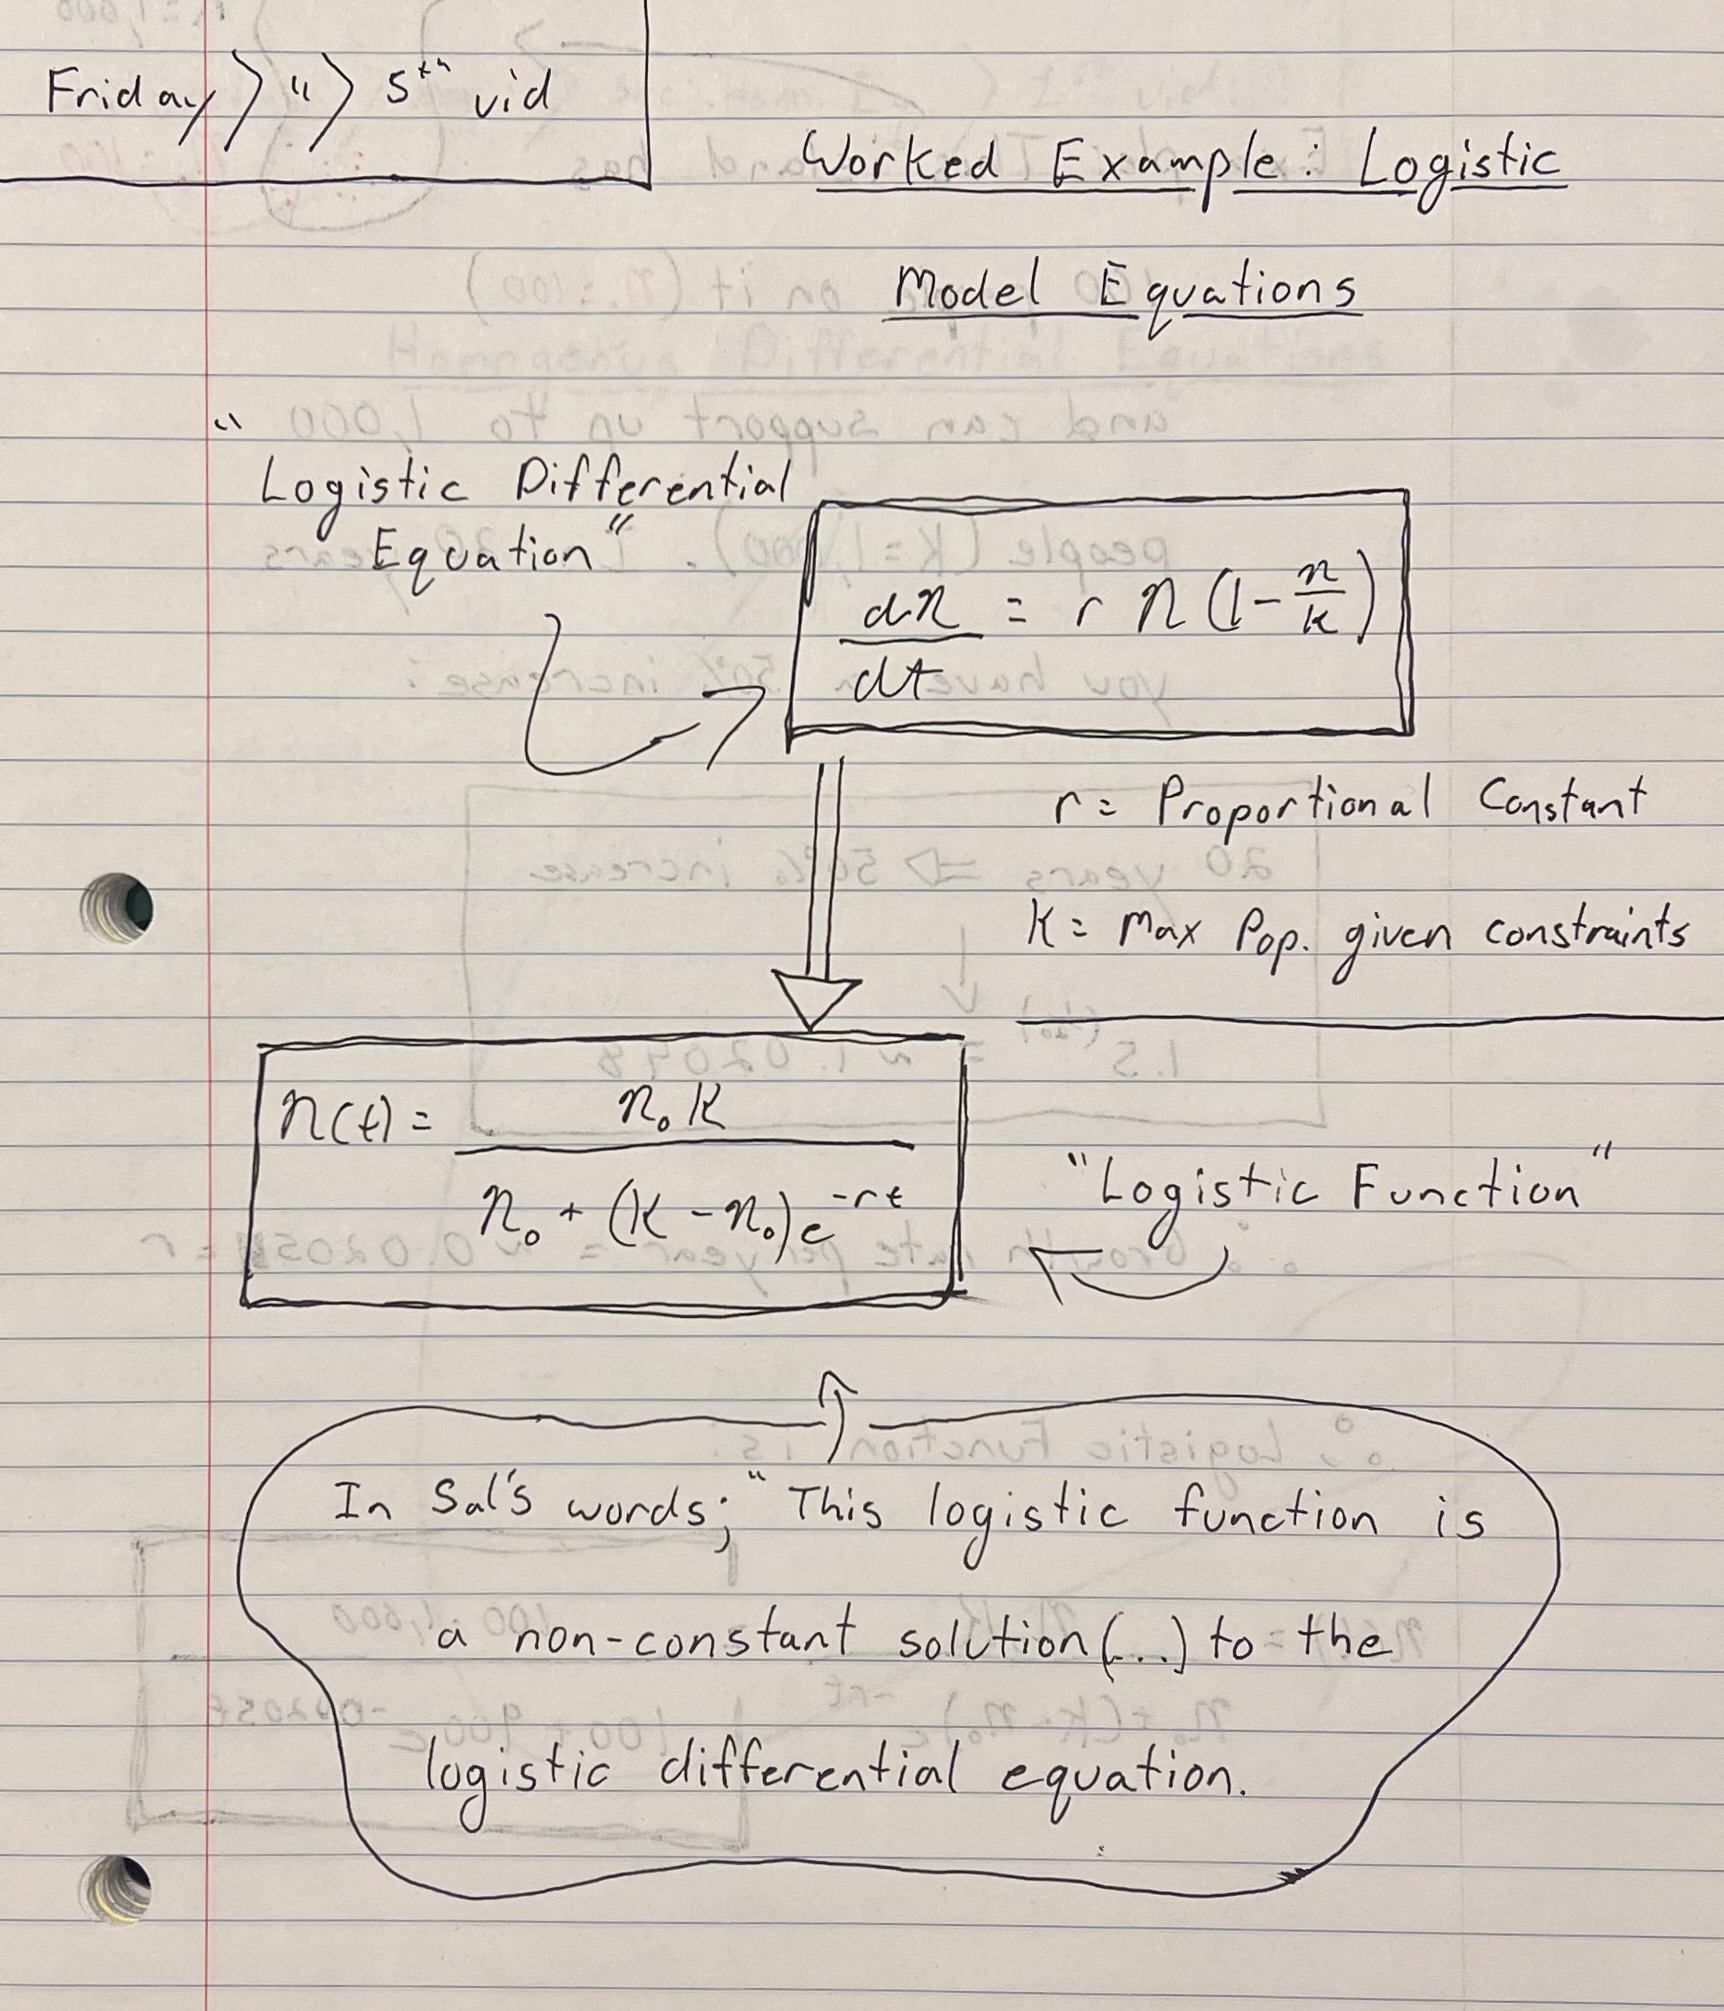 Friday > " > 5th vid
Worked Example: Logistic
Model Equations
"Logistic Differential
Equation"
dn/dt = r n (1 - n/k)
r = Proportional Constant
K = Max Pop. given constraints
n(t) = n₀ K / n₀ + (K - n₀)e^-rt
"Logistic Function"
In Sal's words; "This logistic function is
a non-constant solution (...) to the
logistic differential equation.